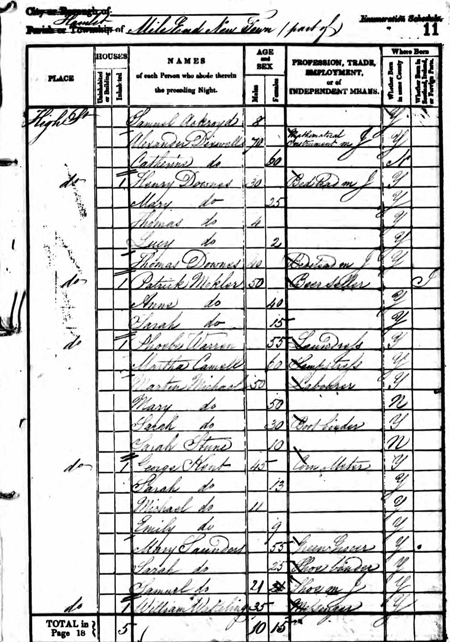 City or Borough of
Hamlet
Parish or Township of Mile End New Town (part of)
Enumeration Schedule.
11
PLACE
HOUSES
Uninhabited or Building
Inhabited
NAMES
of each Person who abode therein the preceding Night.
AGE and SEX
Males
Females
PROFESSION, TRADE, EMPLOYMENT, or of INDEPENDENT MEANS.
Where Born
Whether Born in same County
Whether Born in Scotland, Ireland, or Foreign Parts.
High St Samuel 8 Y
Alexander 70 Mathematical Instrument m J Y
Catherine do 60 N
do 1 Henry Downes 30 Bedstead m J Y
Mary do 25 Y
Thomas do 4 Y
Lucy do 2 Y
Thomas Downes 40 Bedstead m J Y
do 1 Patrick 50 Beer Seller I
Anne do 40 Y
Sarah do 15 Y
do Phoebe Warren 55 Laundress Y
Martha 60 Y
Martin Michael 50 Labourer Y
Mary do 50 N
Sarah do 20 Boot binder Y
Sarah 10 N
do 1 George Kent 45 Corn Meter Y
Sarah do 13 Y
Michael do 11 Y
Emily do 9 Y
Mary Saunders 55 Green Grocer Y
Sarah do 25 Shoe binder Y
Samuel do 21 Shoe m J Y
do 1 William 35 Y
TOTAL in Page 18 5 10 15